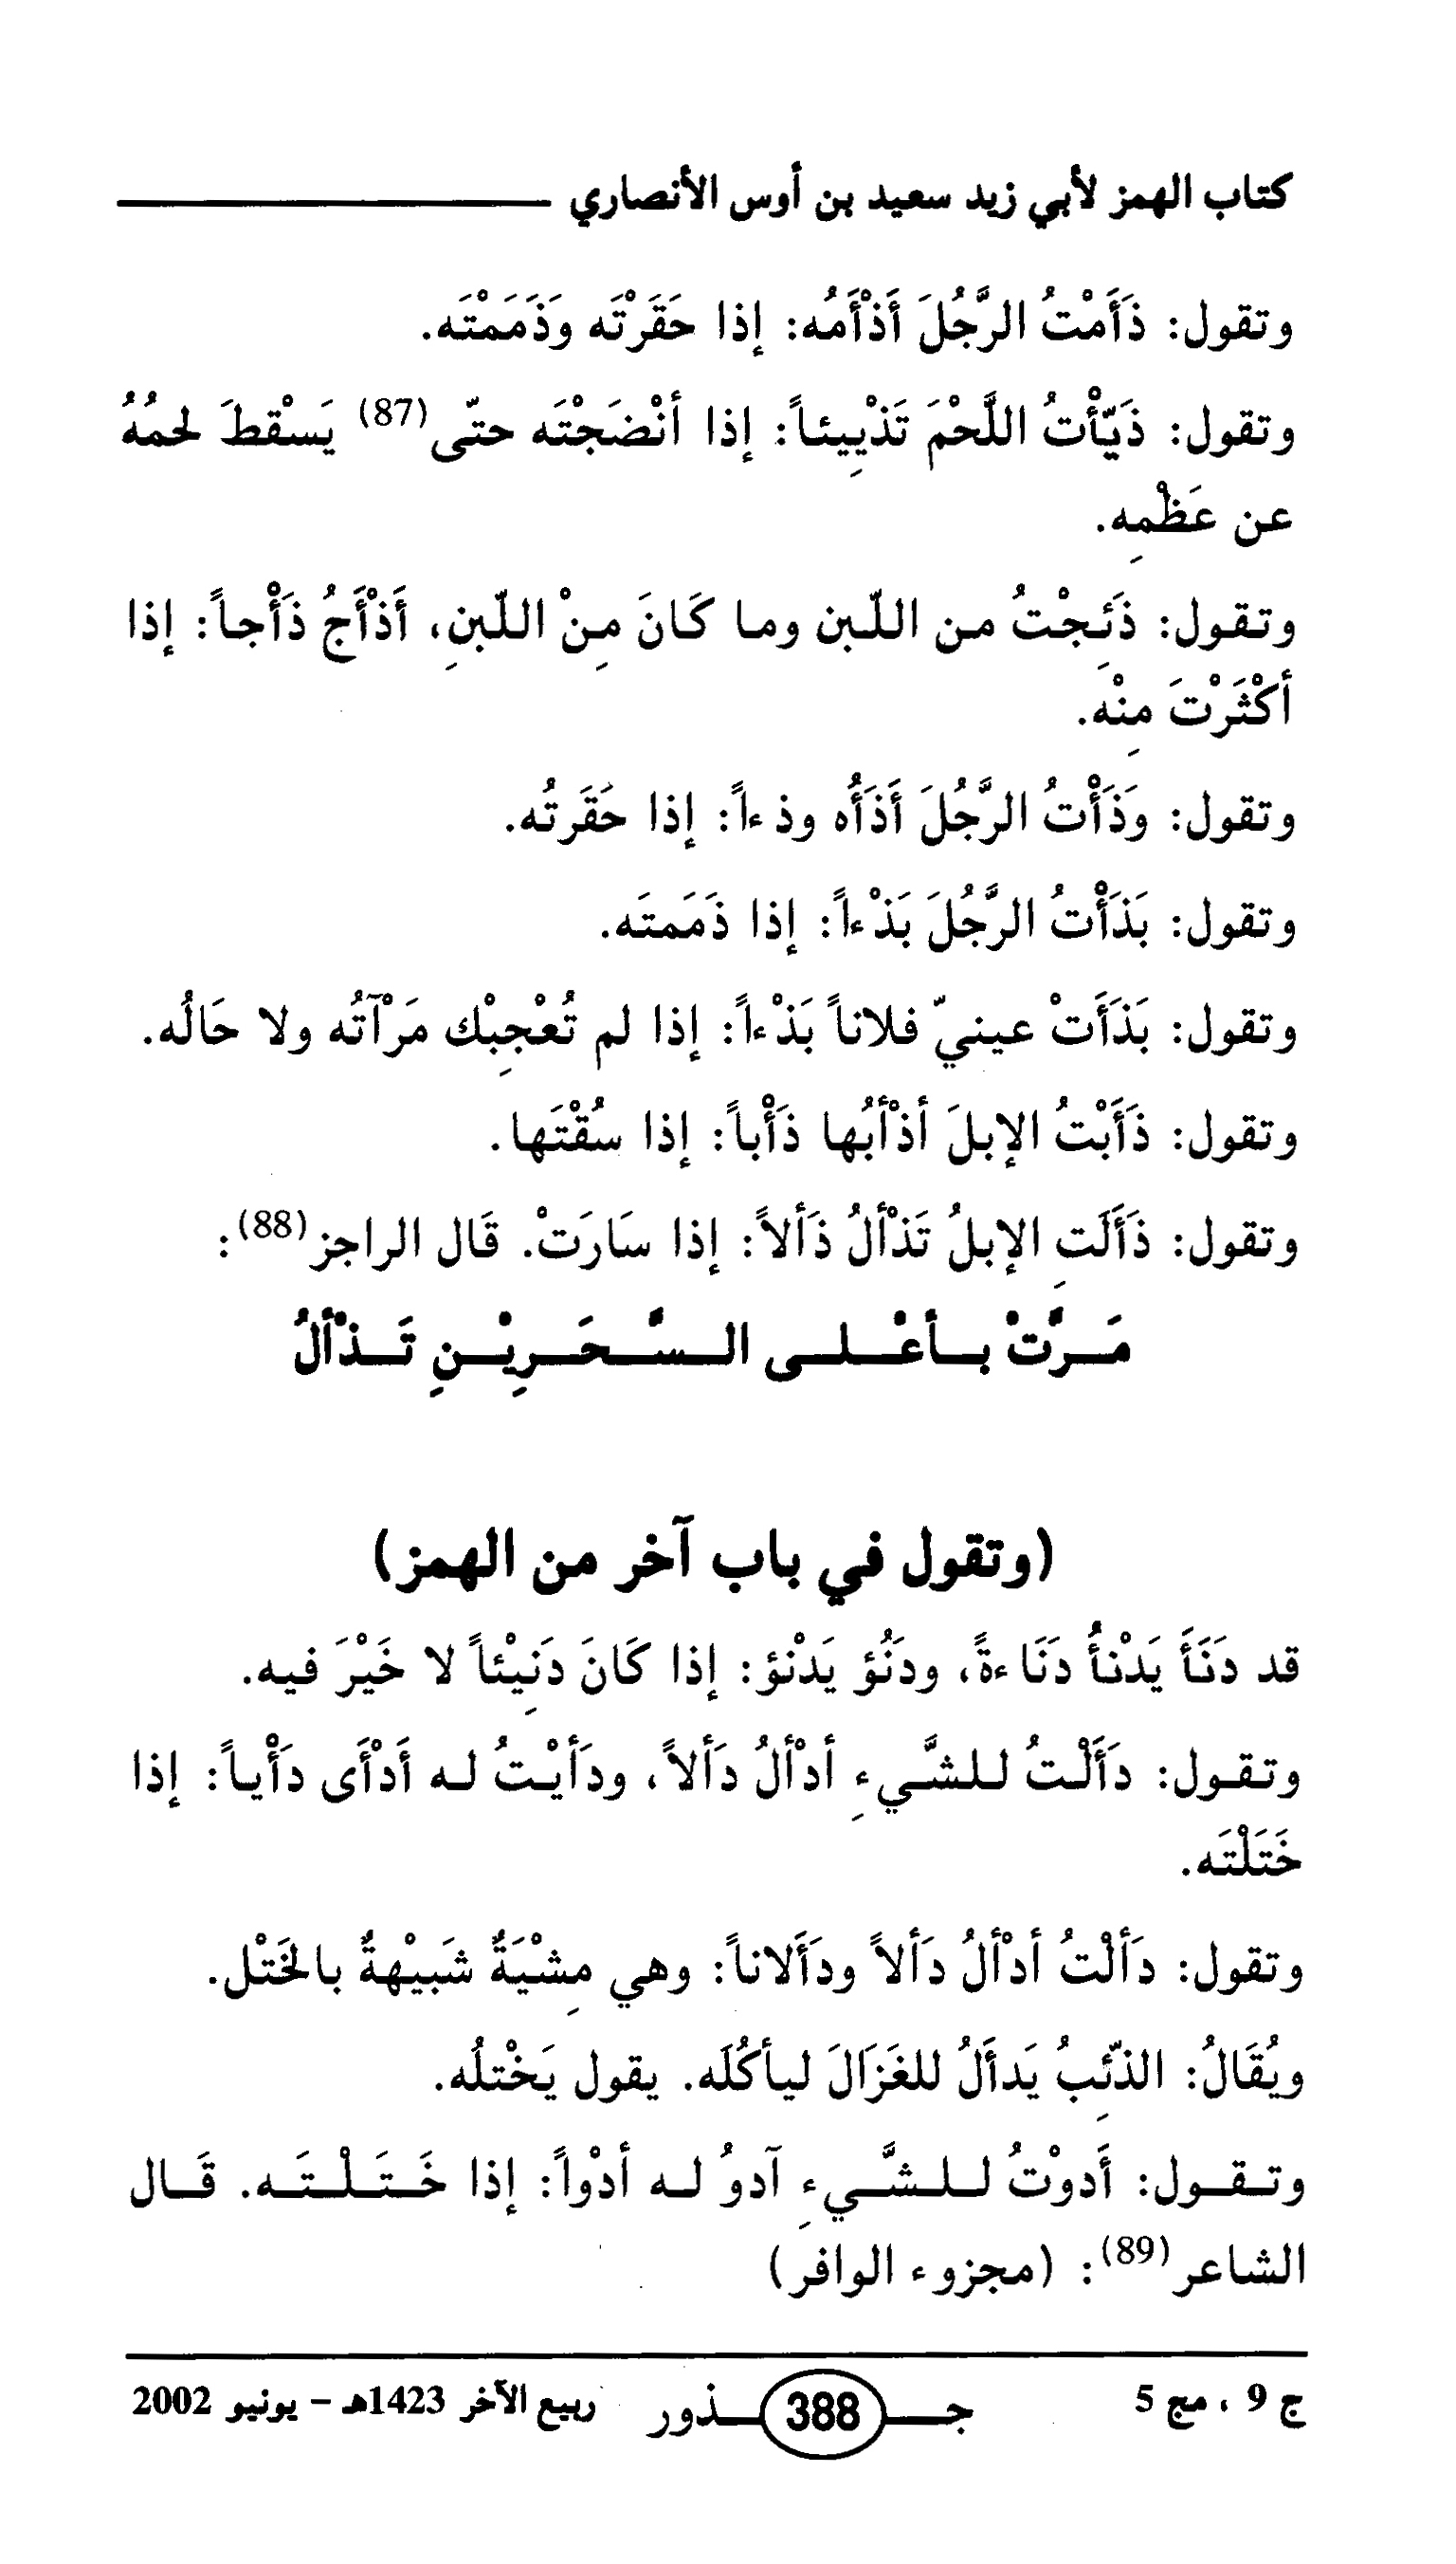 كتاب الهمز لأبي زيد سعيد بن أوس الأنصاري
وتقول: ذَأَمْتُ الرَّجُلَ أَذْأَمُه: إذا حَقَرْتَه وَذَمَمْتَه.
وتقول: ذَيَّأْتُ اللَّحْمَ تَذْيِيئاً: إذا أنْضَجْتَه حتّى(87) يَسْقطَ لحمُهُ
عن عَظْمِه.
وتقول: ذَئِجْتُ من اللّبن وما كَانَ مِنْ اللّبنِ، أَذْأَجُ ذَأْجاً: إذا
أكْثَرْتَ مِنْه.
وتقول: وَذَأْتُ الرَّجُلَ أَذَأُه وذءاً: إذا حَقَرتُه.
وتقول: بَذَأْتُ الرَّجُلَ بَذْءاً: إذا ذَمَمتَه.
وتقول: بَذَأَتْ عينيّ فلاناً بَذْءاً: إذا لم تُعْجِبْك مَرْآتُه ولا حَالُه.
وتقول: ذَأَبْتُ الإبلَ أذْأبُها ذَأْباً: إذا سُقْتَها.
وتقول: ذَأَلَتِ الإبلُ تَذْألُ ذَألاً: إذا سَارَتْ. قَال الراجز(88):
مَرَّتْ بأعْلى السَّحَرِيْنِ تَذْألُ
(وتقول في باب آخر من الهمز)
قد دَنَأَ يَدْنأُ دَنَاءةً، ودَنُؤ يَدْنؤ: إذا كَانَ دَنِيْئاً لا خَيْرَ فيه.
وتقول: دَأَلْتُ للشَّيءِ أدْألُ دَألاً، ودَأيْتُ له أَدْأَى دَأْياً: إذا
خَتَلْتَه.
وتقول: دَألْتُ أدْألُ دَألاً ودَأَلاناً: وهي مِشْيَةٌ شَبيْهةٌ بالخَتْل.
ويُقَالُ: الذّئِبُ يَدأَلُ للغَزَالَ ليأكُلَه. يقول يَخْتلُه.
وتقول: أَدوْتُ للشَّيءِ آدوُ له أدْواً: إذا خَتَلْتَه. قَال
الشاعر(89): (مجزوء الوافر)
ج 9 ، مج 5 جـ 388 ـذور ربيع الآخر 1423هـ - يونيو 2002